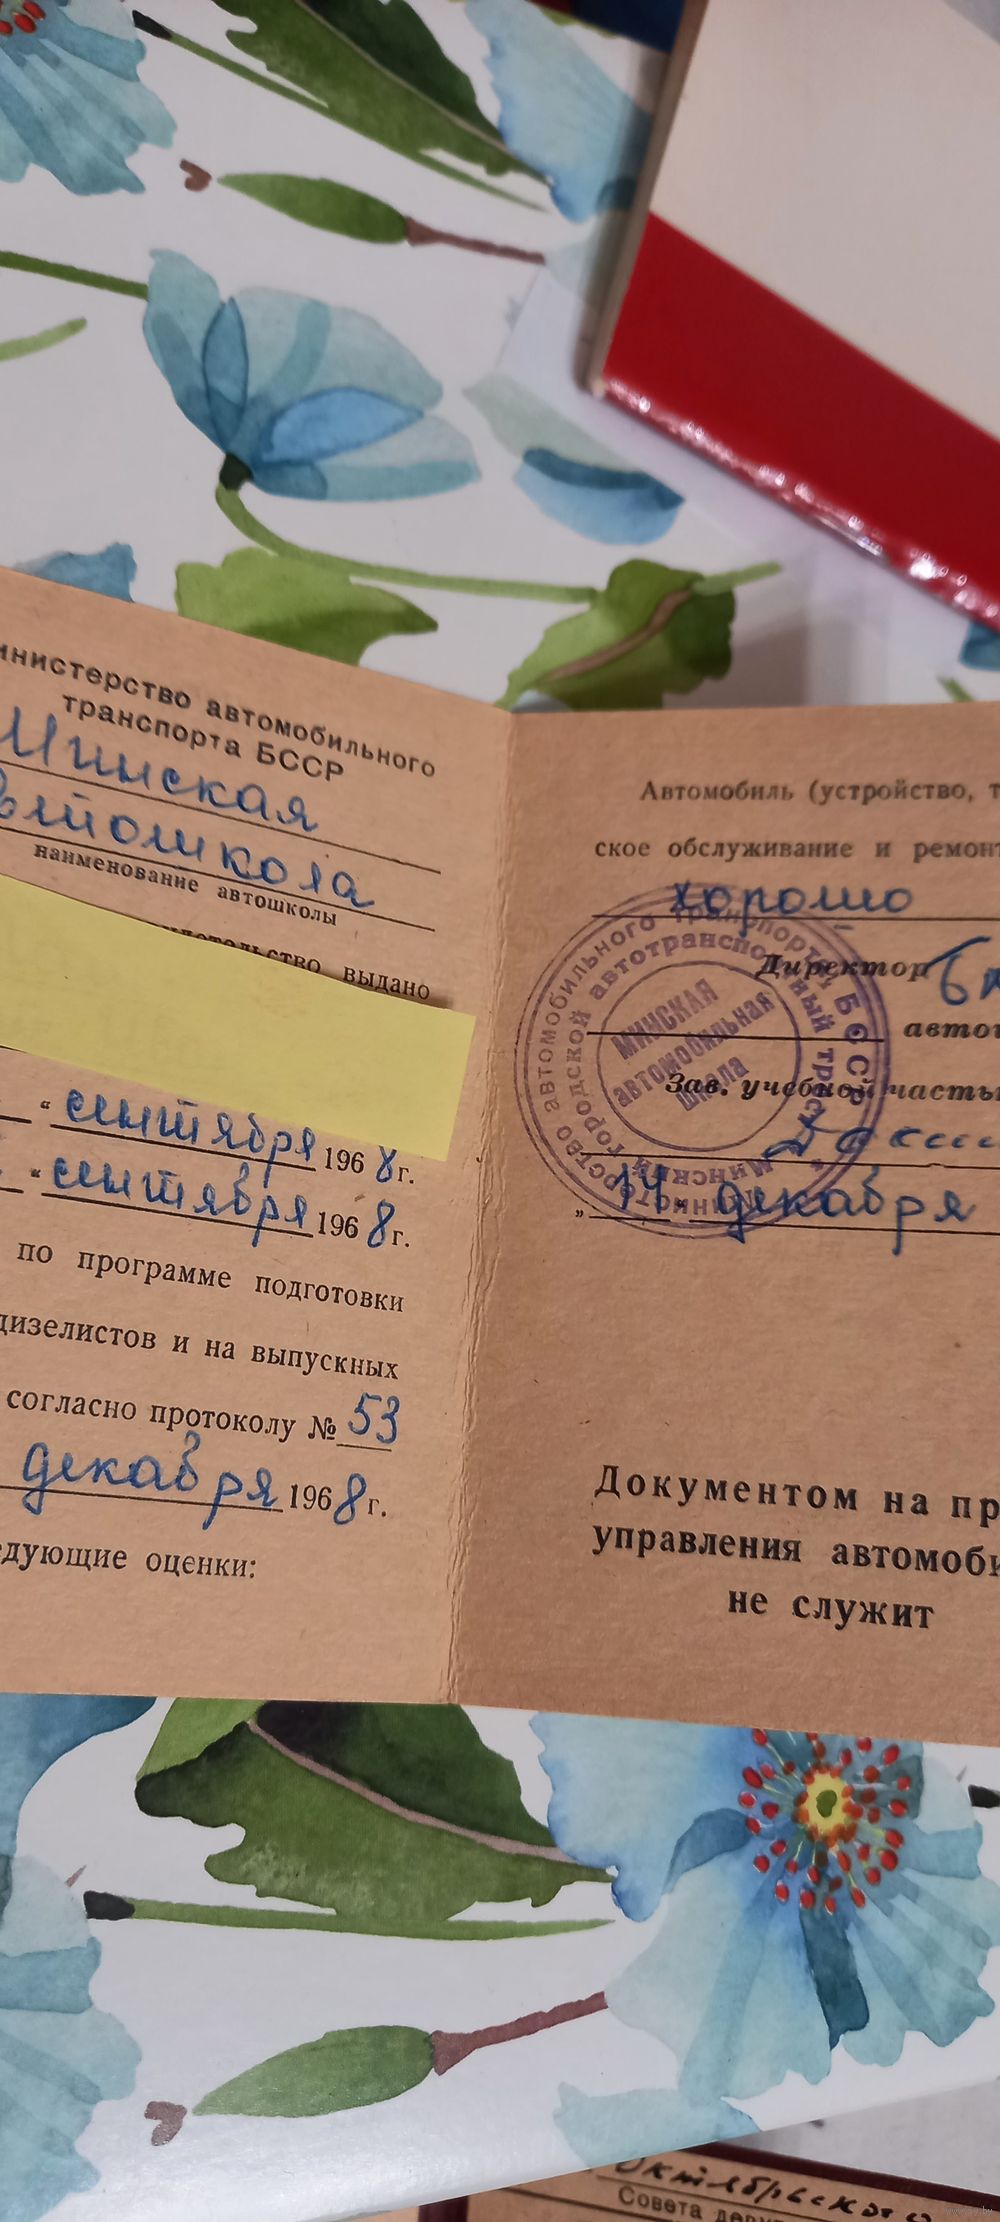 инистерство автомобильного
транспорта БССР
Минская
автошкола
наименование автошколы
выдано
" сентября 1968 г.
" сентября 1968 г.
по программе подготовки
дизелистов и на выпускных
согласно протоколу № 53
декабря 1968 г.
едующие оценки:
Автомобиль (устройство, т
ское обслуживание и ремонт
хорошо
Директор
авто
Зав. учебной часть
„ 14 " декабря
Министерство автомобильного транспорта БССР
Минский городской автотранспортный трест
МИНСКАЯ
автомобильная
школа
Документом на пр
управления автомоби
не служит
Октябрьского
Совета депу